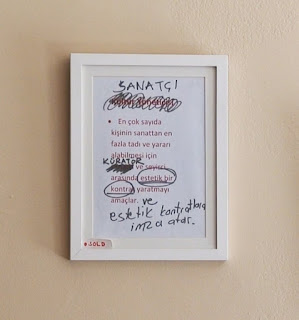 SANATÇI
• En çok sayıda
kişinin sanattan en
fazla tadı ve yararı
alabilmesi için
KÜRATÖR ve seyirci
arasında estetik bir
kontrat yaratmayı
amaçlar. ve
estetik kontratlara
imza atar.
SOLD